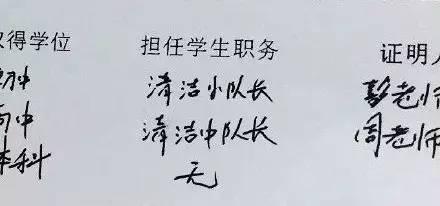 得学位 担任学生职务 证明人
初中 清洁小队长 彭老师
高中 清洁中队长 周老师
本科 无